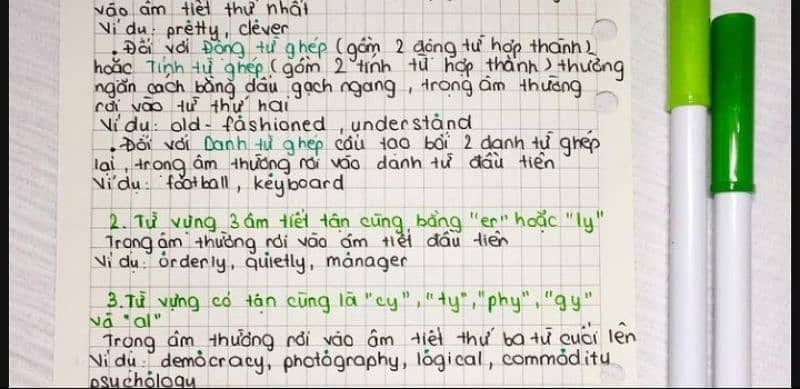 vào âm tiết thứ nhất
Ví dụ: pretty, clever
. Đối với Động từ ghép (gồm 2 động từ hợp thành)
hoặc Tính từ ghép (gồm 2 tính từ hợp thành) thường
ngăn cách bằng dấu gạch ngang, trọng âm thường
rơi vào từ thứ hai
Ví dụ: old-fashioned, understand
. Đối với Danh từ ghép cấu tạo bởi 2 danh từ ghép
lại, trọng âm thường rơi vào danh từ đầu tiên
Ví dụ: football, keyboard
2. Từ vựng 3 âm tiết tận cùng bằng "er" hoặc "ly"
Trọng âm thường rơi vào âm tiết đầu tiên
Ví dụ: orderly, quietly, manager
3. Từ vựng có tận cùng là "cy", "ty", "phy", "gy"
và "al"
Trọng âm thường rơi vào âm tiết thứ ba từ cuối lên
Ví dụ: democracy, photography, logical, commodity
psychology